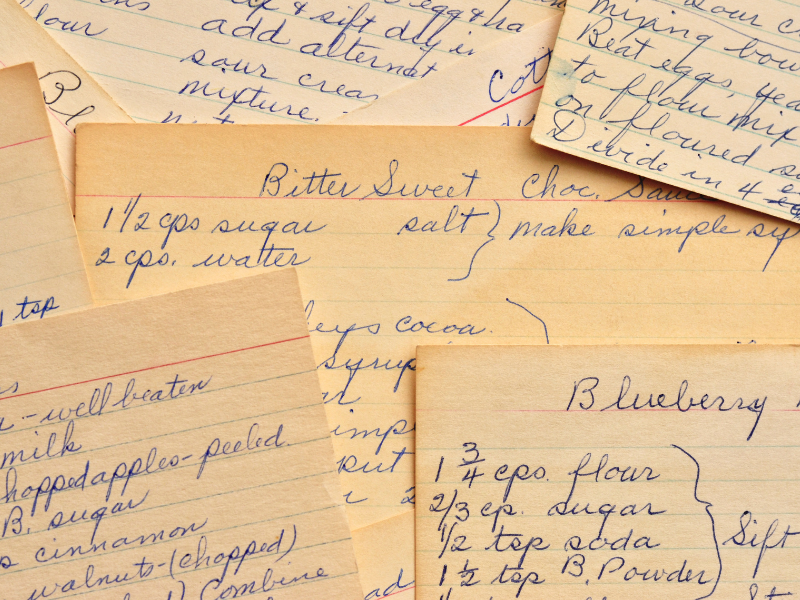 flour
& sift dry
add alternat
sour crea
mixture.
Bl
Cott
sour c
mixing bow
Beat eggs,
to flour mix
on floured
Divide in 4
Bitter Sweet Choc. Sauce
1 1/2 cps sugar salt } make simple sy
2 cps. watter
eys cocoa.
syrup
imp
put
1 tsp
- well beaten
milk
hopped apples - peeled.
B. sugar
cinnamon
walnuts - (chopped)
Combine
ad
Blueberry
1 3/4 cps. flour
2/3 cp. sugar
1/2 tsp soda
1 1/2 tsp B. Powder
} Sift